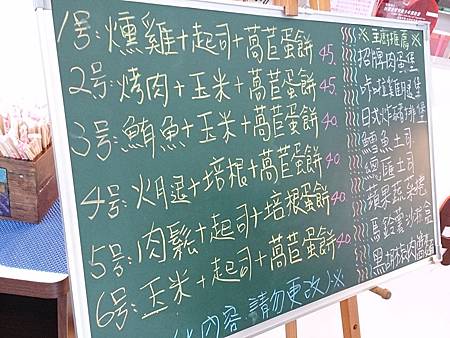 1号:燻雞+起司+萵苣蛋餅 45.
2号:烤肉+玉米+萵苣蛋餅 45.
3号:鮪魚+玉米+萵苣蛋餅 40
4号:火腿+培根+萵苣蛋餅 40.
5号:肉鬆+起司+培根蛋餅 40.
6号:玉米+起司+萵苣蛋餅 40.
內容,請勿更改)※
※主廚推薦※
招牌肉蛋堡
咔啦雞腿堡
日式炸豬排堡
鱈魚土司
總匯土司
蘋果蔬菜捲
馬鈴薯沙拉盒
黑胡椒肉醬麵